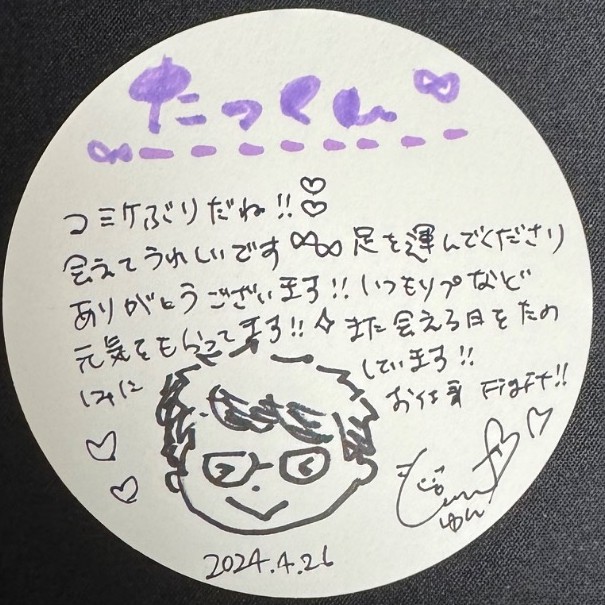 たっくん
コミケぶりだね!!♡♡
会えてうれしいです 足を運んでくださり
ありがとうございます!! いつもリプなど
元気をもらってます!! また会える日をたの
しみに しています!!
お仕事 Fight!!
ゆん
2024.4.26